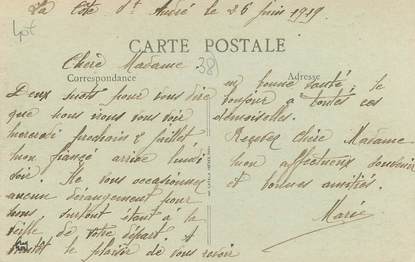 La Côte St André le 26 juin 1919
CARTE POSTALE
38
Chère Madame
Correspondance
Adresse
Deux mots pour vous dire
que nous irons vous voir
mercredi prochain 2 juillet
mon fiancé arrive lundi
soir Ne vous occasionnez
aucun dérangement pour
nous surtout étant à la
veille de votre départ. A
bientôt le plaisir de vous revoir
en bonne santé, le
bonjour à toutes ces
demoiselles.
Recevez Chère Madame
mon affectueux souvenir
et bonnes amitiés.
Marie